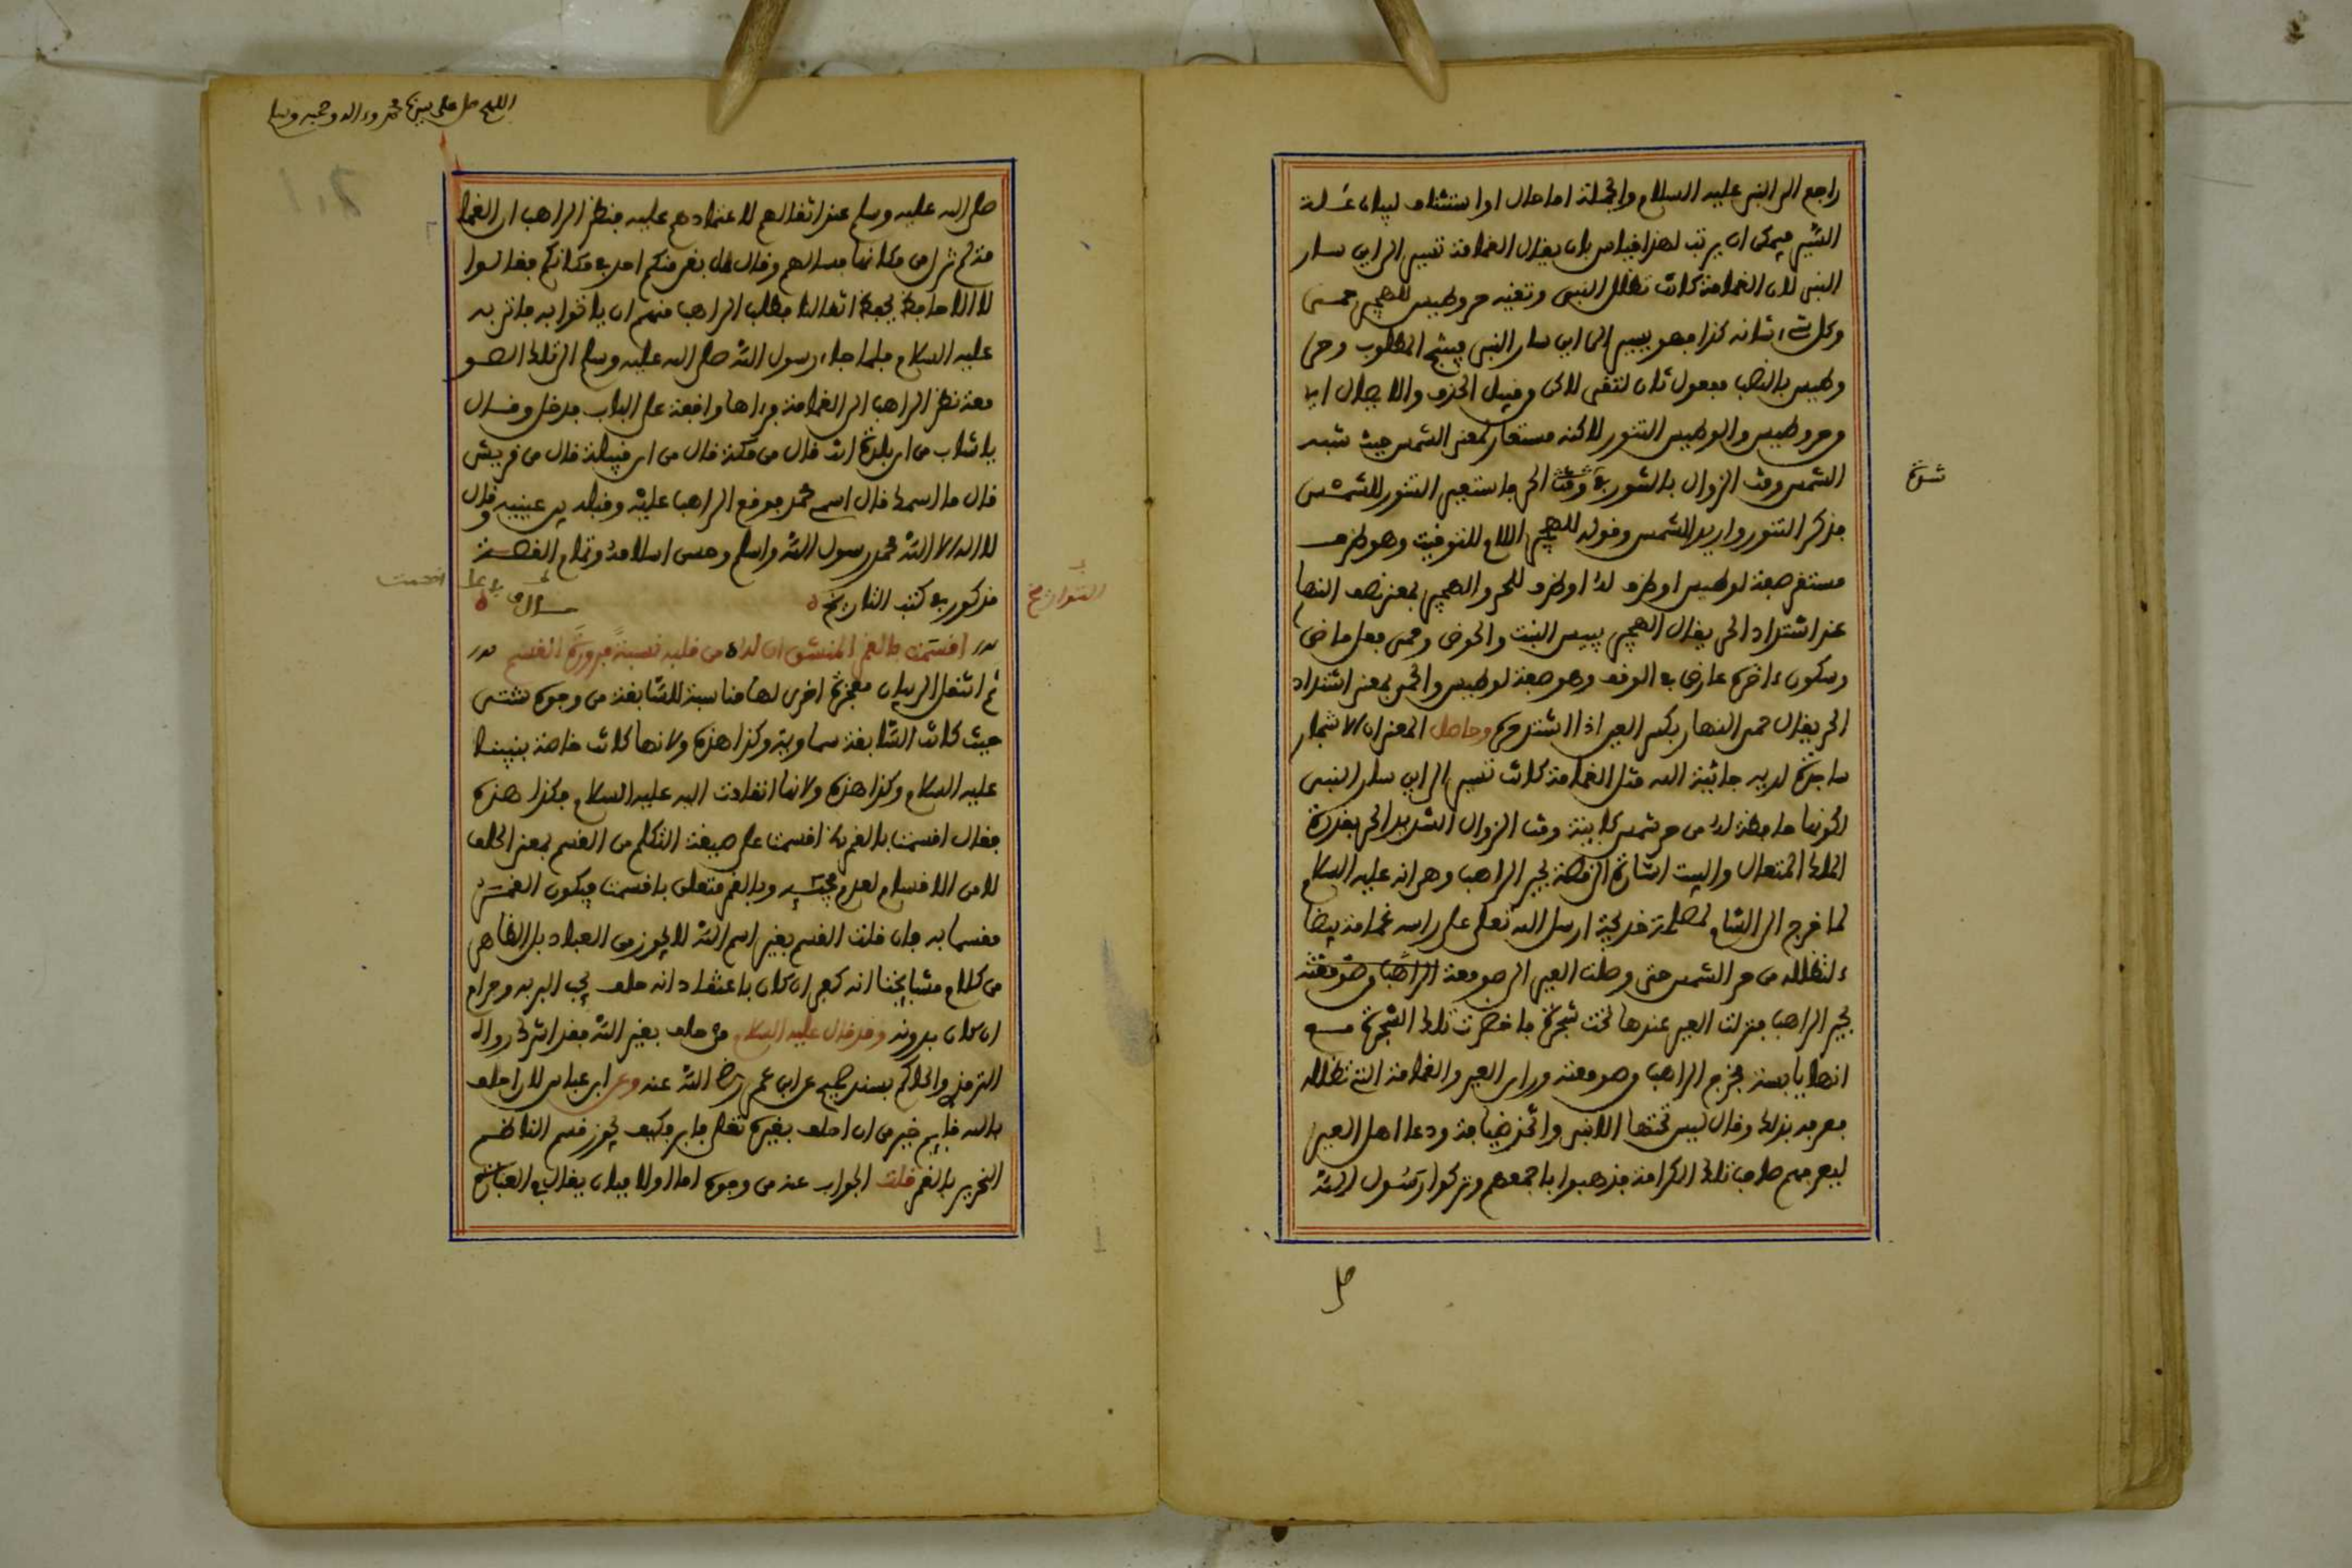 راجع الى النبي عليه السلام والجملة اما حال او استئناف لبيان علة
السير فيمكن ان يرتب لهذا قياس بان يقال الغمامة تسير الى اين سار
النبي لان الغمامة كانت تظلل النبي وتقيه حر وطيس للهجير حمي
وكل شيء شانه كذا فهو يسير الى اين سار النبي فينتج المطلوب وحر
وطيس بالنصب مفعول ثان لتقي لاكن وقيل الحذف والايصال اي
وحر وطيس والوطيس التنور لاكنه مستعار لمعنى الشمس حيث شبه
الشمس وقت الزوال بالتنور في وقت الحر فاستعير التنور للشمس
فذكر التنور واريد الشمس وقوله للهجير اللام للتوقيت وهو ظرف
مستقر صفة لوطيس او ظرف له او ظرف للحر والهجير بمعنى نصف النهار
عند اشتداد الحر يقال الهجير ييبس النبت والحوض وحمي فعل ماض
وسكون ءاخره عارض في الوقف وهو صفة لوطيس والحمي بمعنى اشتداد
الحر يقال حمي النهار بكسر العين اذا اشتد حره وحاصل المعنى ان الاشجار
ساجدة لديه جاثية اليه مثل الغمامة كانت تسير الى اين سار النبي
لكونها حافظة له من حر شمس كاينة وقت الزوال الشديد الحر بقدرة
الملك المتعال والبيت اشارة الى قصة بحير الراهب وهي انه عليه السلام
لما خرج الى الشام لمصلحة خديجة ارسل الله تعلى على راسه غمامة بيضا
ء لتظلله من حر الشمس حتى وصلت العير الى صومعة الراهب وصومعته
بحير الراهب فنزلت العير عندها تحت شجرة فاخضرت تلك الشجرة مع
انها يابسة فخرج الراهب من صومعته وراى العير والغمامة التي تظلله
فعرفه بذلك وقال ليس تحتها الا نبي واتخذ ضيافة ودعا اهل العير
ليعرف منهم صاحب تلك الكرامة فذهبوا باجمعهم وتركوا رسول الله
شدة
صل
اللهم صل على سيدنا محمد وءاله وصحبه وسلم
صلى الله عليه وسلم عند اثقالهم لاعتمادهم عليه فنظر الراهب ان الغما
مة لم تزل من مكانها فسالهم وقال هل بقي منكم احد في مكانكم فقالوا
لا الا حافظ يحفظ اثقالنا فطلب الراهب منهم ان ياتوا به فاتى به
عليه السلام فلما جاء رسول الله صلى الله عليه وسلم الى تلك الصو
معة نظر الراهب الى الغمامة فراها واقفة على الباب فدخل وقال
يا شاب من اي بلدة انت قال من مكة قال من اي قبيلة قال من قريش
قال ما اسمك قال اسمي محمد فوقع الراهب عليه وقبله بين عينيه وقال
لا اله الا الله محمد رسول الله واسلم وحسن اسلامه وتمام القصة
مذكور في كتب التاريخ
التواريخ
اقسمت بالقمر المنشق ان له من قلبه نسبة مبرورة القسم
ثم انتقل الى بيان معجزة اخرى لها مناسبة للسابقة من وجوه شتى
حيث كانت السابقة سماوية وكذا هذه ولانها كانت خاصة بنبينا
عليه السلام وكذا هذه ولانها انقادت اليه عليه السلام فكذا هذه
فقال اقسمت بالقمر الخ اقسمت على صيغة التكلم من القسم بمعنى الحلف
لا من الاقسام لعدم مجيئه وبالقمر متعلق باقسمت فيكون القمر
مقسما به فان قلت القسم بغير اسم الله لا يجوز من العباد بل الظاهر
من كلام مشايخنا انه كفر ان كان باعتقاد انه حلف يجب البر به وحرام
ان كان بدونه وقد قال عليه السلام من حلف بغير الله فقد اشرك رواه
الترمذي والحاكم بسند صحيح عن ابن عمر رضي الله عنه وعن ابن عباس لان احلف
بالله فاثم خير من ان احلف بغيره تعلى فابر وكيف يجوز قسم الناظم
النحرير بالقمر قلت الجواب عنه من وجوه اما اولا فبان يقال في العبارة